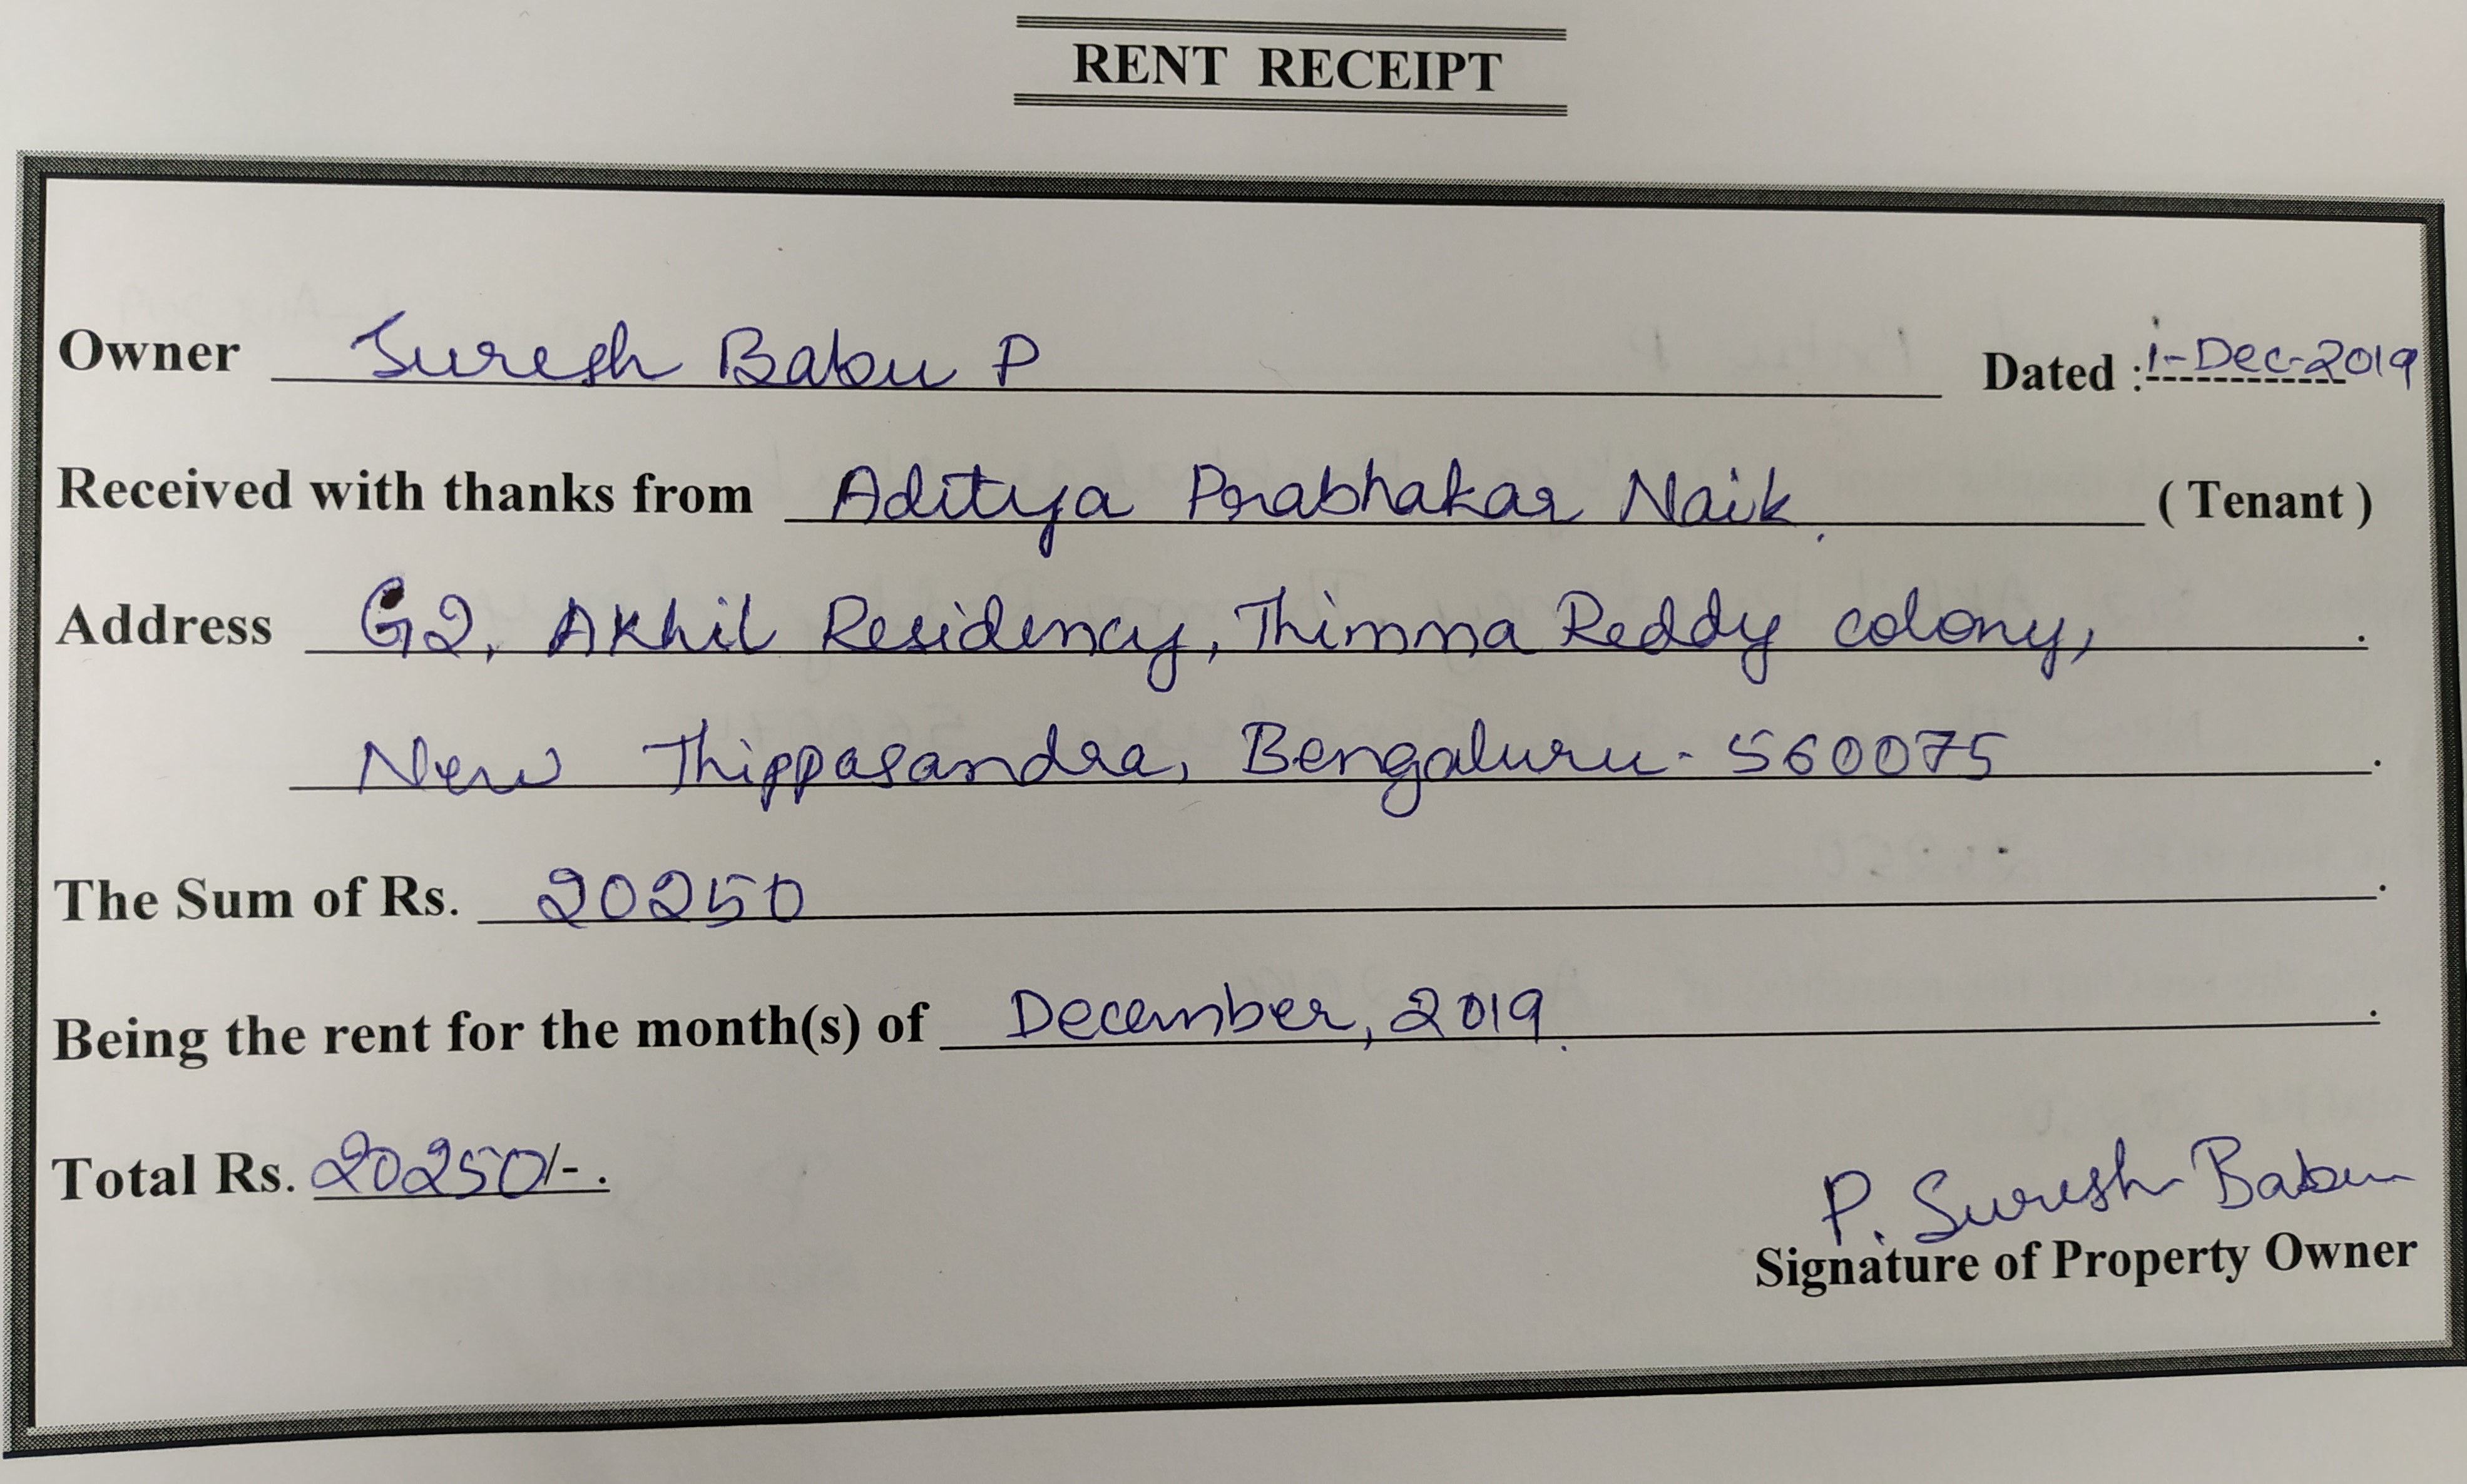 RENT RECEIPT
Owner Suresh Babu P Dated : 1-Dec-2019
Received with thanks from Aditya Prabhakar Naik ( Tenant )
Address G2, Akhil Residency, Thimma Reddy colony, .
New Thippasandra, Bengaluru - 560075 .
The Sum of Rs. 20250 .
Being the rent for the month(s) of December, 2019 .
Total Rs. 20250/- .
P. Suresh Babu
Signature of Property Owner